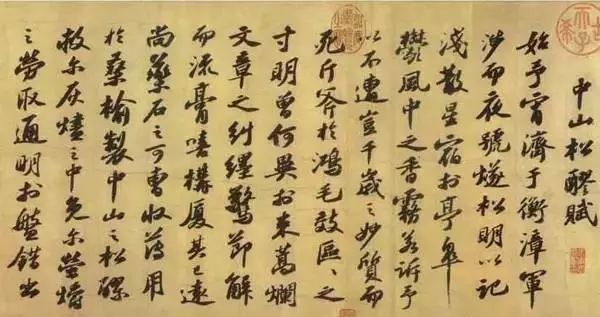 中山松醪賦
始予宵濟于衡漳軍
涉而夜號燧松明以記
淺散星宿於亭皋
鬱風中之香霧若訴予
以不遭豈千歲之妙質而
死斤斧於鴻毛效區區之
寸明曾何異於束蒿爛
文章之糾纏驚節解
而流膏嘻構廈其已遠
尚藥石之可曹收薄用
於桑榆製中山之松醪
救尔灰燼之中免尔螢爝
之勞取通明於盤錯出